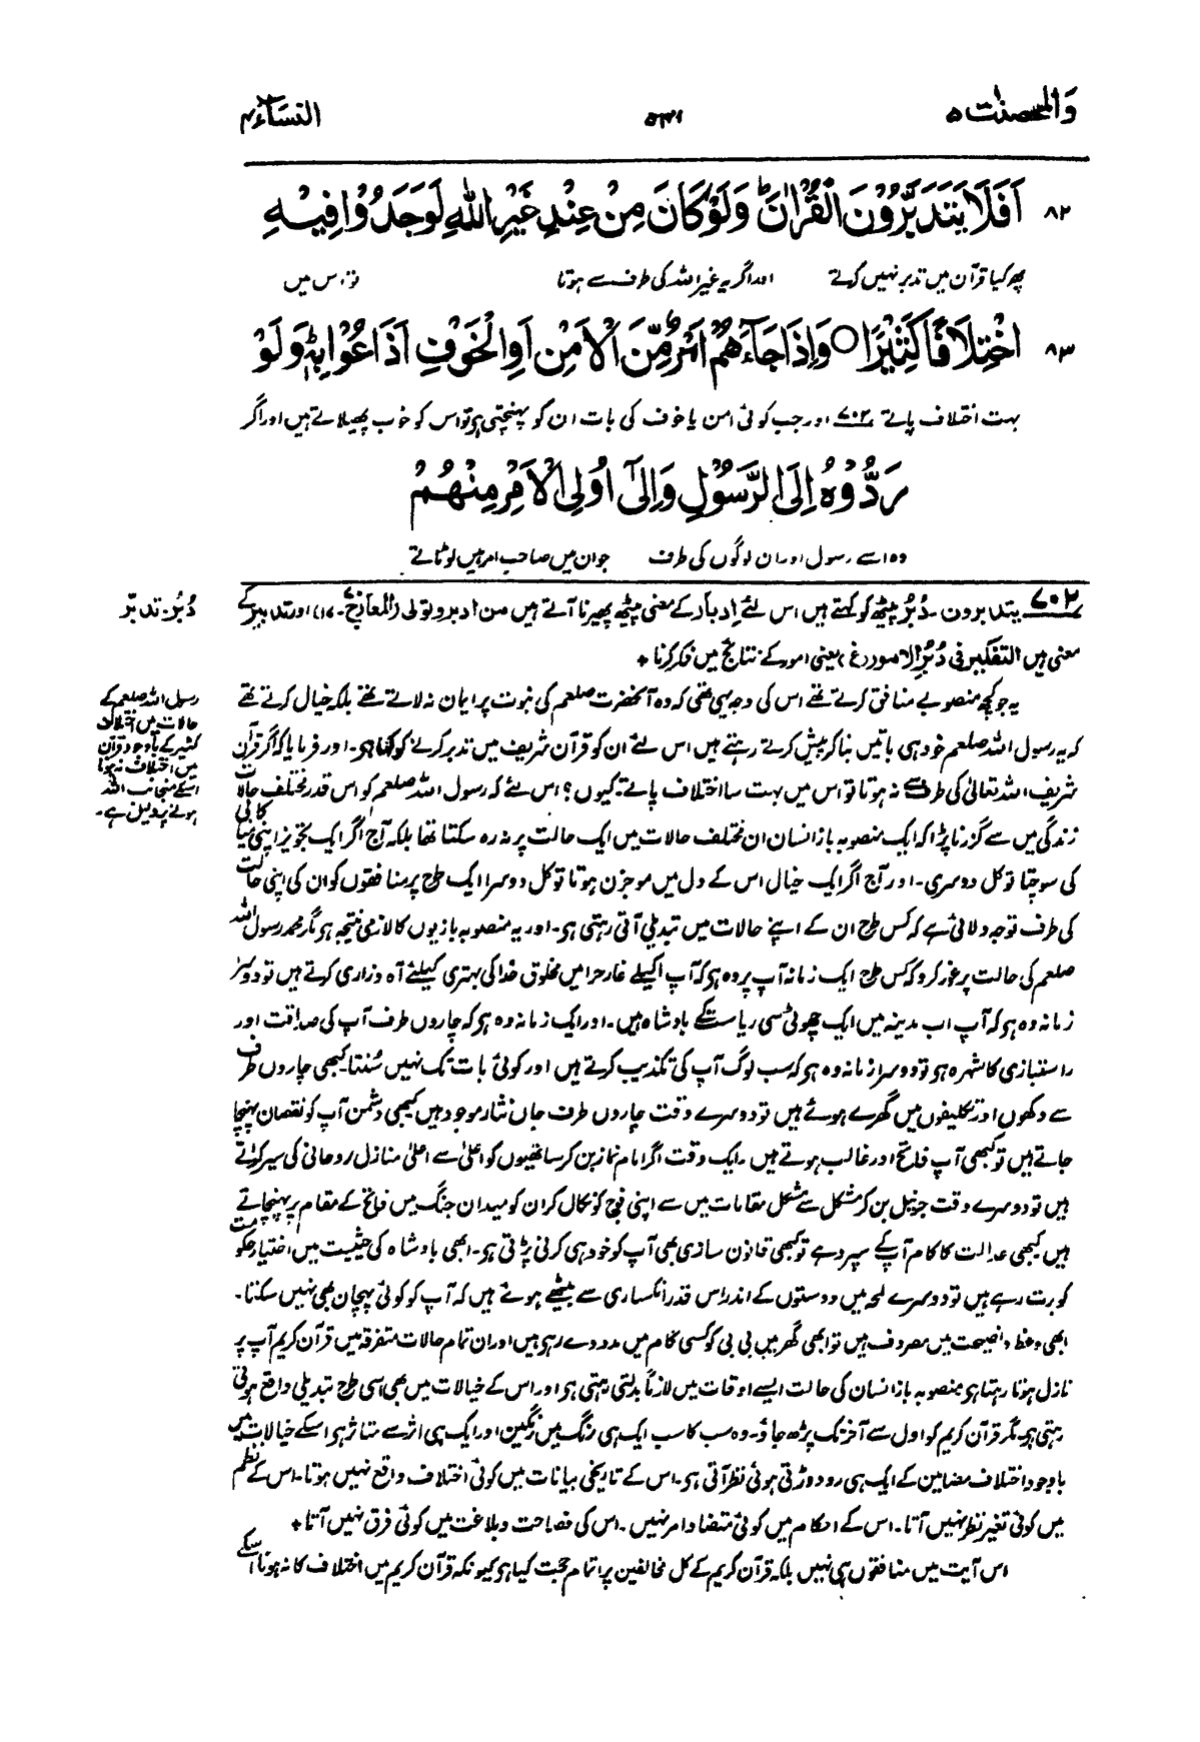 وَالمحصنٰت ۵ ۵۳۱ النساء ۴
۸۲ اَفَلَا يَتَدَبَّرُوْنَ الْقُرْاٰنَ ؕ وَلَوْ كَانَ مِنْ عِنْدِ غَيْرِ اللّٰهِ لَوَجَدُوْا فِيْهِ
پھر کیا قرآن میں تدبر نہیں کرتے اور اگر یہ غیر اللہ کی طرف سے ہوتا تو اس میں
۸۳ اخْتِلَافًا كَثِيْرًا ○ وَاِذَا جَآءَهُمْ اَمْرٌ مِّنَ الْاَمْنِ اَوِ الْخَوْفِ اَذَاعُوْا بِهٖ ؕ وَلَوْ
بہت اختلاف پاتے ۷۰۲ اور جب کوئی امن یا خوف کی بات ان کو پہنچتی ہو تو اس کو خوب پھیلاتے ہیں اور اگر
رَدُّوْهُ اِلَى الرَّسُوْلِ وَاِلٰٓى اُولِى الْاَمْرِ مِنْهُمْ
وہ اسے رسول اور ان لوگوں کی طرف جو ان میں صاحب امر ہیں لوٹاتے
دُبُر۔ تدبّر
۷۰۲ یتدبرون۔ دُبُر پیٹھ کو کہتے ہیں اس لئے اِدبار کے معنی پیٹھ پھیرنا آتے ہیں من ادبر وتولی (المعارج۔ ۱۷) اور تدبر کے
معنی ہیں التفکیر فی دُبُر الامور (غ) یعنی امور کے نتائج میں فکر کرنا +
رسول اللہ صلعم کے
حالات میں اختلاف
کثیر کے باوجود قرآن
میں اختلاف نہ ہونا
اسکے منجانب اللہ
ہونے پر دلیل ہے۔
یہ جو کچھ منصوبے منافق کرتے تھے اس کی وجہ یہی تھی کہ وہ آنحضرت صلعم کی نبوت پر ایمان نہ لاتے تھے بلکہ خیال کرتے تھے
کہ یہ رسول اللہ صلعم خود ہی باتیں بنا کر پیش کرتے رہتے ہیں اس لئے ان کو قرآن شریف میں تدبر کرنے کو کہا ہو۔ اور فرمایا کہ اگر قرآن
شریف اللہ تعالیٰ کی طرف سے نہ ہوتا تو اس میں بہت سا اختلاف پاتے۔ کیوں؟ اس لئے کہ رسول اللہ صلعم کو اس قدر مختلف حالات
زندگی میں سے گزرنا پڑا کہ ایک منصوبہ باز انسان ان مختلف حالات میں ایک حالت پر نہ رہ سکتا تھا بلکہ آج اگر ایک تجویز اپنی کامیابی
کی سوچتا تو کل دوسری۔ اور آج اگر ایک خیال اس کے دل میں موجزن ہوتا تو کل دوسرا ایک طرح پر منافقوں کو ان کی اپنی حالت
کی طرف توجہ دلائی ہے کہ کس طرح ان کے اپنے حالات میں تبدیلی آتی رہتی ہو۔ اور یہ منصوبہ بازیوں کا لازمی نتیجہ ہو مگر محمد رسول اللہ
صلعم کی حالت پر غور کرو کہ کس طرح ایک زمانہ آپ پر وہ ہو کہ آپ اکیلے غار حرا میں مخلوق خدا کی بہتری کیلئے آہ وزاری کرتے ہیں تو دوسرا
زمانہ وہ ہو کہ آپ اب مدینہ میں ایک چھوٹی سی ریاست کے بادشاہ ہیں۔ اور ایک زمانہ وہ ہو کہ چاروں طرف آپ کی صداقت اور
راستبازی کا شہرہ ہو تو دوسرا زمانہ وہ ہو کہ سب لوگ آپ کی تکذیب کرتے ہیں اور کوئی بات تک نہیں سُنتا۔ کبھی چاروں طرف
سے دکھوں اور تکلیفوں میں گھرے ہوئے ہیں تو دوسرے وقت چاروں طرف جاں نثار موجود ہیں کبھی دشمن آپ کو نقصان پہنچا
جاتے ہیں تو کبھی آپ فاتح اور غالب ہوتے ہیں۔ ایک وقت اگر امام نماز بن کر ساتھیوں کو اعلیٰ سے اعلیٰ منازل روحانی کی سیر کراتے
ہیں تو دوسرے وقت جرنیل بن کر مشکل سے مشکل مقامات میں سے اپنی فوج کو نکال کر ان کو میدان جنگ میں فاتح کے مقام پر پہنچاتے
ہیں کبھی عدالت کا کام آپ کے سپرد ہے تو کبھی قانون سازی بھی آپ کو خود ہی کرنی پڑتی ہو۔ ابھی بادشاہ کی حیثیت میں اختیار حکومت
کو برت رہے ہیں تو دوسرے لمحہ میں دوستوں کے اندر اس قدر انکساری سے بیٹھے ہوئے ہیں کہ آپ کو کوئی پہچان بھی نہیں سکتا۔
ابھی وعظ و نصیحت میں مصروف ہیں تو ابھی گھر میں بی بی کو کسی کام میں مدد دے رہے ہیں اور ان تمام حالات متفرقہ میں قرآن کریم آپ پر
نازل ہوتا رہتا ہو منصوبہ باز انسان کی حالت ایسے اوقات میں لازماً بدلتی رہتی ہو اور اس کے خیالات میں بھی اسی طرح تبدیلی واقع ہوتی
رہتی ہو مگر قرآن کریم کو اول سے آخر تک پڑھ جاؤ۔ وہ سب کا سب ایک ہی رنگ میں رنگین اور ایک ہی اثر سے متاثر ہو اسکے خیالات میں
باوجود اختلاف مضامین کے ایک ہی رو دوڑتی ہوئی نظر آتی ہو۔ اس کے تاریخی بیانات میں کوئی اختلاف واقع نہیں ہوتا۔ اس کے نظم
میں کوئی تغیر نظر نہیں آتا۔ اس کے احکام میں کوئی متضاد امر نہیں۔ اس کی فصاحت و بلاغت میں کوئی فرق نہیں آتا +
اس آیت میں منافقوں ہی نہیں بلکہ قرآن کریم کے کل مخالفین پر اتمام حجت کیا ہو کیونکہ قرآن کریم میں اختلاف کا نہ ہونا اسکے